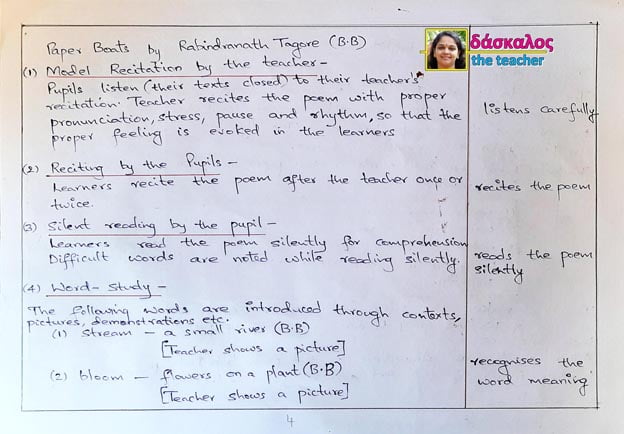 Paper Boats by Rabindranath Tagore (B.B)
δάσκαλος
the teacher
(1) Model Recitation by the teacher -
Pupils listen (their texts closed) to their teacher's
recitation. Teacher recites the poem with proper
pronunciation, stress, pause and rhythm, so that the
proper feeling is evoked in the learners
listens carefully
(2) Reciting by the Pupils -
Learners recite the poem after the teacher once or
twice.
recites the poem
(3) Silent reading by the pupil -
Learners read the poem silently for comprehension
Difficult words are noted while reading silently.
reads the poem
silently
(4) Word-Study -
The following words are introduced through contexts,
pictures, demonstrations etc.
(1) stream - a small river (B.B)
[Teacher shows a picture]
(2) bloom - flowers on a plant (B.B)
[Teacher shows a picture]
recognises the
word meaning
4